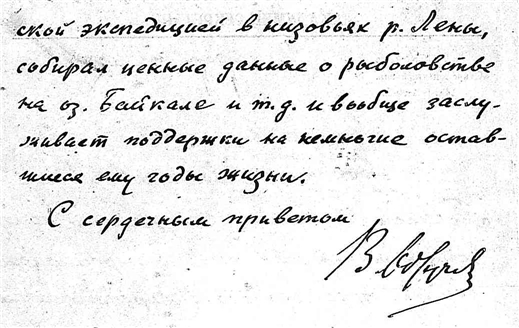 ской экспедицией в низовьях р. Лены,
собирал ценные данные о рыболовстве
на оз. Байкале и т.д. и вообще заслу-
живает поддержки на немногие остав-
шиеся ему годы жизни.
С сердечным приветом